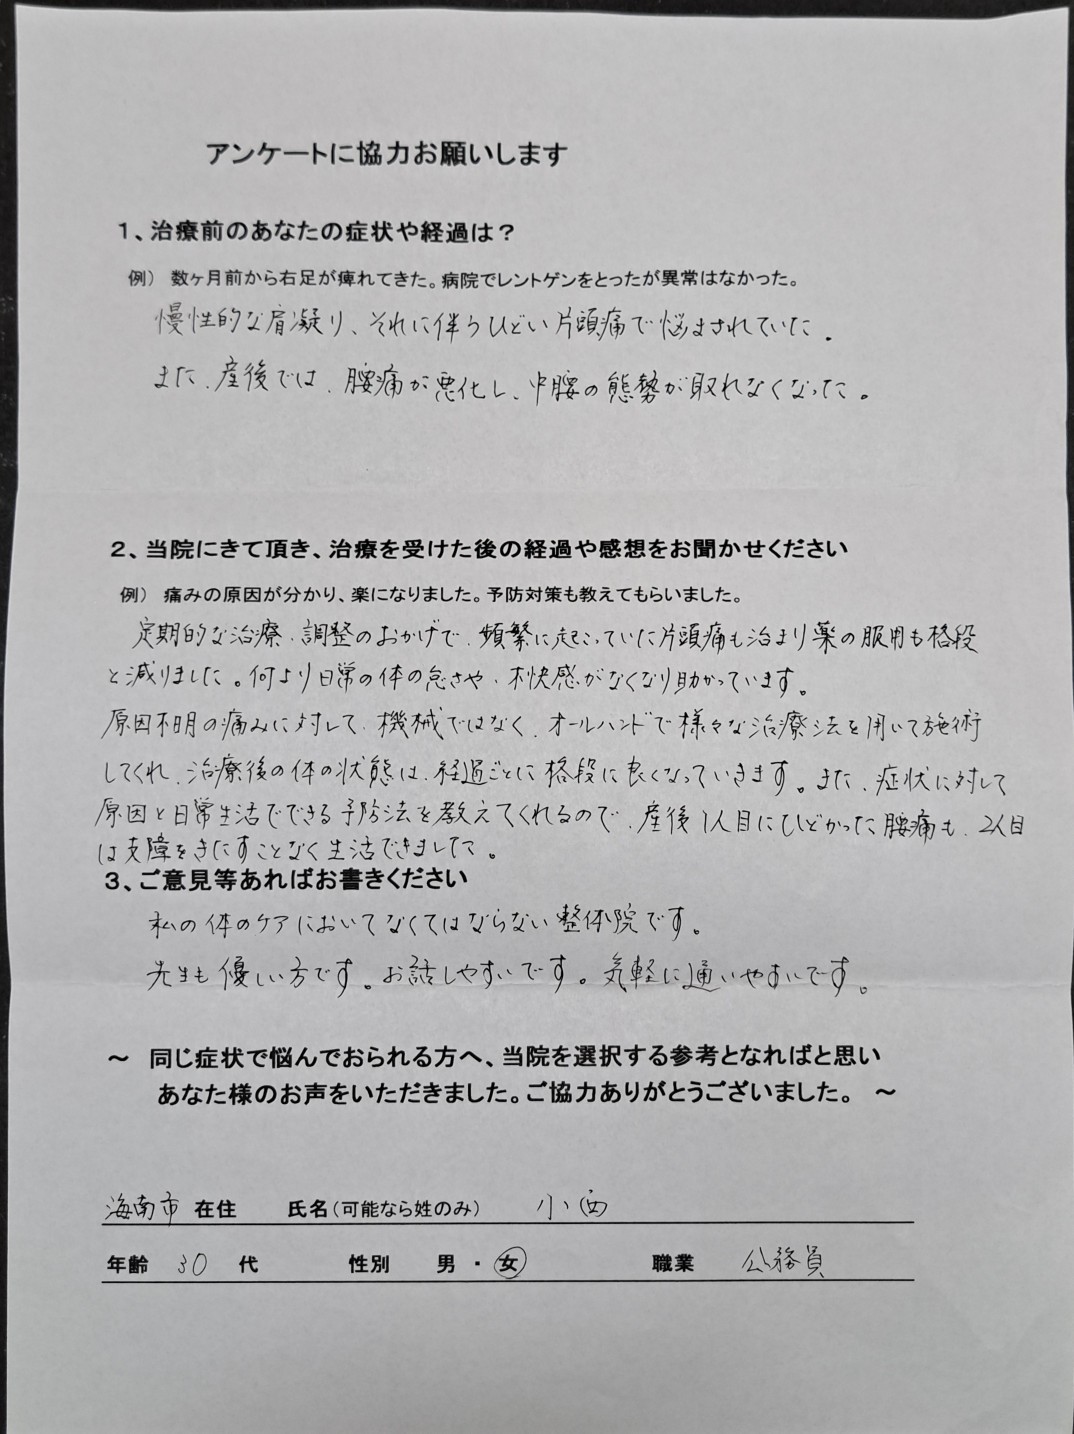 アンケートに協力お願いします
1、治療前のあなたの症状や経過は？
例） 数ヶ月前から右足が痺れてきた。病院でレントゲンをとったが異常はなかった。
慢性的な肩凝り、それに伴うひどい片頭痛で悩まされていた。
また、産後では、腰痛が悪化し、中腰の態勢が取れなくなった。
2、当院にきて頂き、治療を受けた後の経過や感想をお聞かせください
例） 痛みの原因が分かり、楽になりました。予防対策も教えてもらいました。
定期的な治療、調整のおかげで、頻繁に起こっていた片頭痛も治まり薬の服用も格段
と減りました。何より日常の体の怠さや、不快感がなくなり助かっています。
原因不明の痛みに対して、機械ではなく、オールハンドで様々な治療法を用いて施術
してくれ、治療後の体の状態は、経過ごとに格段に良くなっていきます。また、症状に対して
原因と日常生活でできる予防法を教えてくれるので、産後1人目にひどかった腰痛も、2人目
は支障をきたすことなく生活できました。
3、ご意見等あればお書きください
私の体のケアにおいてなくてはならない整体院です。
先生も優しい方です。お話しやすいです。気軽に通いやすいです。
～ 同じ症状で悩んでおられる方へ、当院を選択する参考となればと思い
あなた様のお声をいただきました。ご協力ありがとうございました。 ～
海南市 在住 氏名（可能なら姓のみ） 小西
年齢 30 代 性別 男 ・ 女 職業 公務員